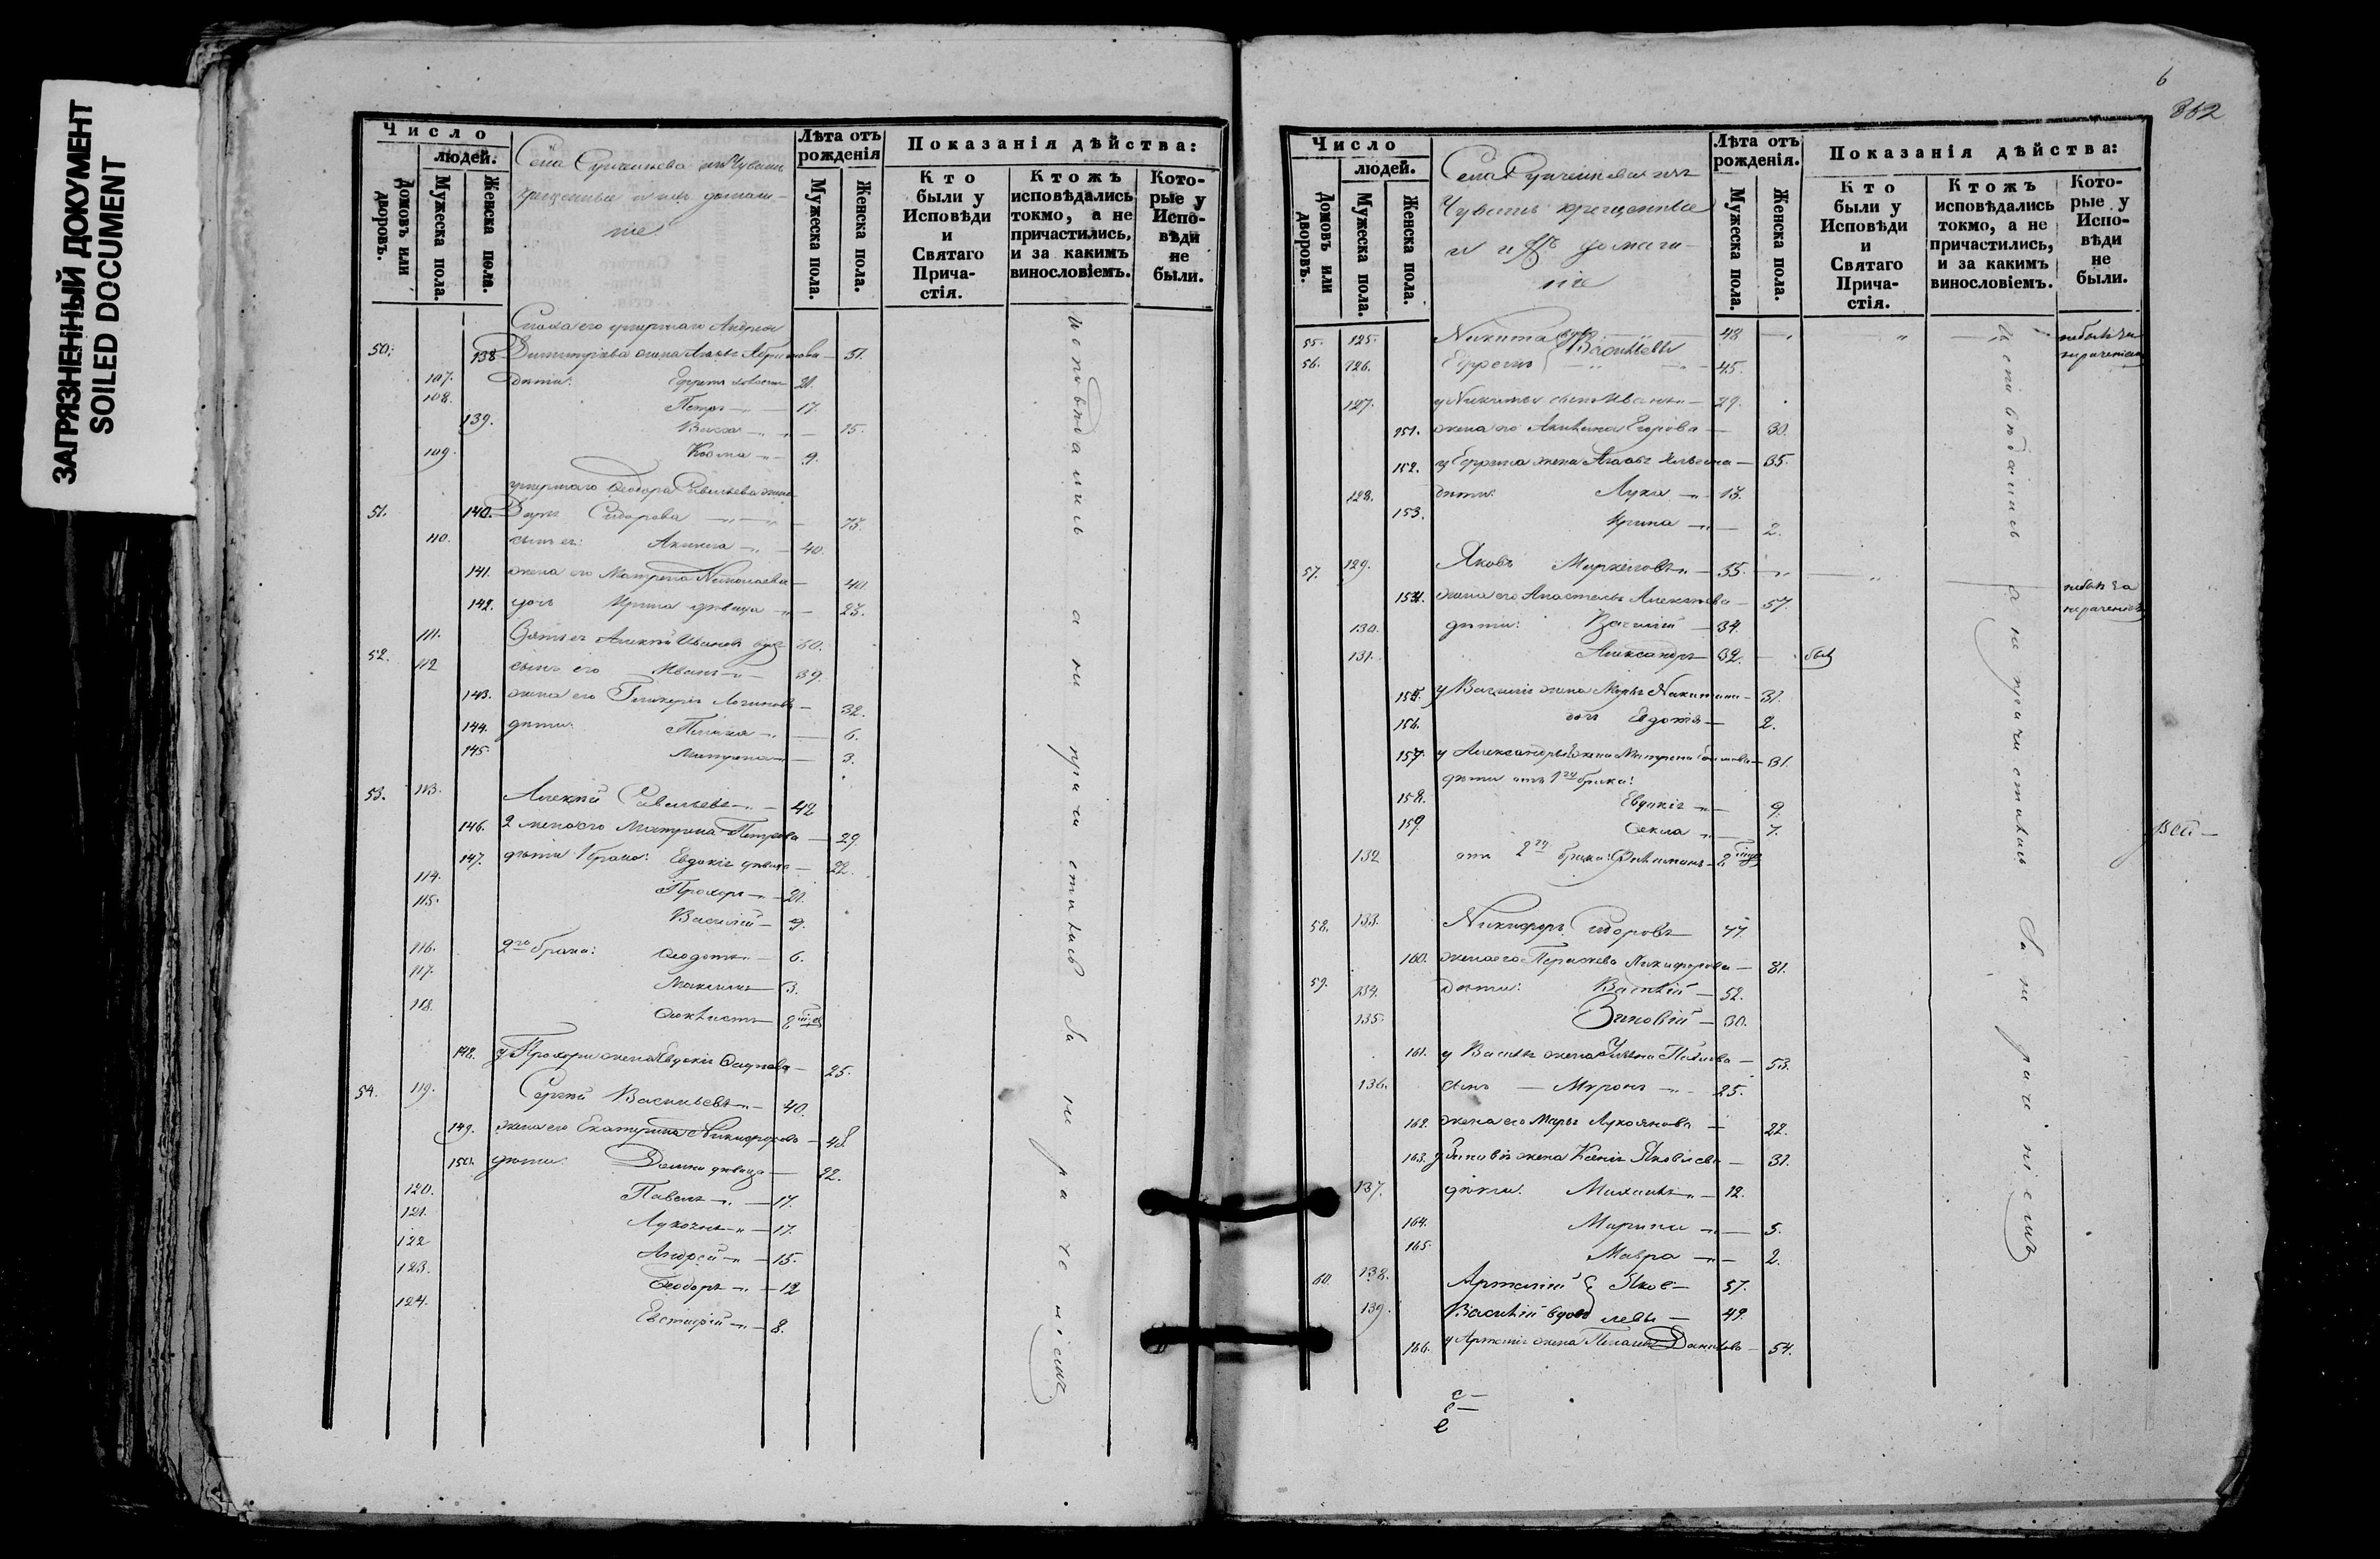 ЗАГРЯЗНЕННЫЙ ДОКУМЕНТ
SOILED DOCUMENT
Число
людей.
Домовъ или дворовъ.
Мужеска пола.
Женска пола.
Села из Чувашъ
крещенные и ихъ домаш-
ніе.
Лѣта отъ рожденія
Мужеска пола.
Женска пола.
Показанія дѣйства:
Кто были у Исповѣди и Святаго Прича-стія.
Ктожъ исповѣдались токмо, а не причастились, и за какимъ винословіемъ.
Кото-рые у Испо-вѣди не были.
его умершаго Андрея
50. 138 Димитріева жена 51.
107. дѣти: Ефремъ 21.
108. Петръ 17.
139. Васса 15.
109. Козма 9.
умершаго Ѳеодора Савельева жена
51. 140. Дарья Сидорова 73.
110. сынъ ея: Акинѳа 40.
141. жена его Матрена Николаева 40.
142. дочь Ирина дѣвица 23.
111. Зять ея Алексѣй Ивановъ вдовъ 60.
52. 112 сынъ его Иванъ 39.
143. жена его Гликерія 32.
144. дѣти: 6.
145. Матрена 3.
53. 113. Алексѣй Савельевъ 42
146. 2 жена его Матрона Петрова 29.
147. дѣти 1 брака: Евдокія дѣвица 22.
114. Прохоръ 21.
115. Василій 9.
116. 2го брака: Ѳеодотъ 6.
117. Максимъ 3.
118. Ѳеоктистъ
148. у Прохора жена Евдокія 25.
54. 119. Сергѣй Васильевъ 40.
149. жена его Екатерина Никифорова 48.
150. дѣти: Домна дѣвица 22.
120. Павелъ 17.
121. 17.
122 Андрей 15.
123. Ѳеодоръ 12
124. Евстафій 8.
исповѣдались а не причастились За нераченіемъ
6
362
Число
людей.
Домовъ или дворовъ.
Мужеска пола.
Женска пола.
Села изъ
Чувашъ крещенные
и ихъ домаш-
ніе
Лѣта отъ рожденія.
Мужеска пола.
Женска пола.
Показанія дѣйства:
Кто были у Исповѣди и Святаго Прича-стія.
Ктожъ исповѣдались токмо, а не причастились, и за какимъ винословіемъ.
Кото-рые у Испо-вѣди не были.
55. 125. Никита вдов 48 небылъ за
Васильевы нераченіемъ
56. 126. Ефремъ 45.
127. у Никиты сынъ Иванъ 29.
151. жена его Акилина Егорова 30.
152. у Ефрема жена Агаѳья 35.
128. дѣти: Лука 13.
153. Ирина 2.
57. 129. Яковъ Маркеловъ 55. небылъ за
нераченіемъ
154. жена его Анастасія Алексѣева 57.
130. дѣти: Василій 34.
131. Александръ 32. былъ
155. у Василія жена Марья Никитина 31.
156. дочь Евдокія 2.
157. у Александра жена Матрена 31.
дѣти отъ 1го брака:
158. Евдокія 9.
159. Ѳекла 7.
132 отъ 2го брака: Филимонъ
58. 133. Никифоръ Сидоровъ 77.
160. жена его Никифорова 81.
59. 134. дѣти: Василій 52.
135. Зиновій 30.
161. у Василья жена Ульяна Павлова 53.
136. сынъ Миронъ 25.
162. жена его Марья Лукоянова 22.
163. у Зиновія жена Ксенія Яковлева 31.
137. дѣти: Михаилъ 12.
164. Марина 5.
165. Мавра 2.
60. 138. Артемій Яков- 57.
139. Василій вдовъ левы 49.
166. у Артемія жена Пелагея Данилова 54.
исповѣдались а не причастились За нераченіемъ